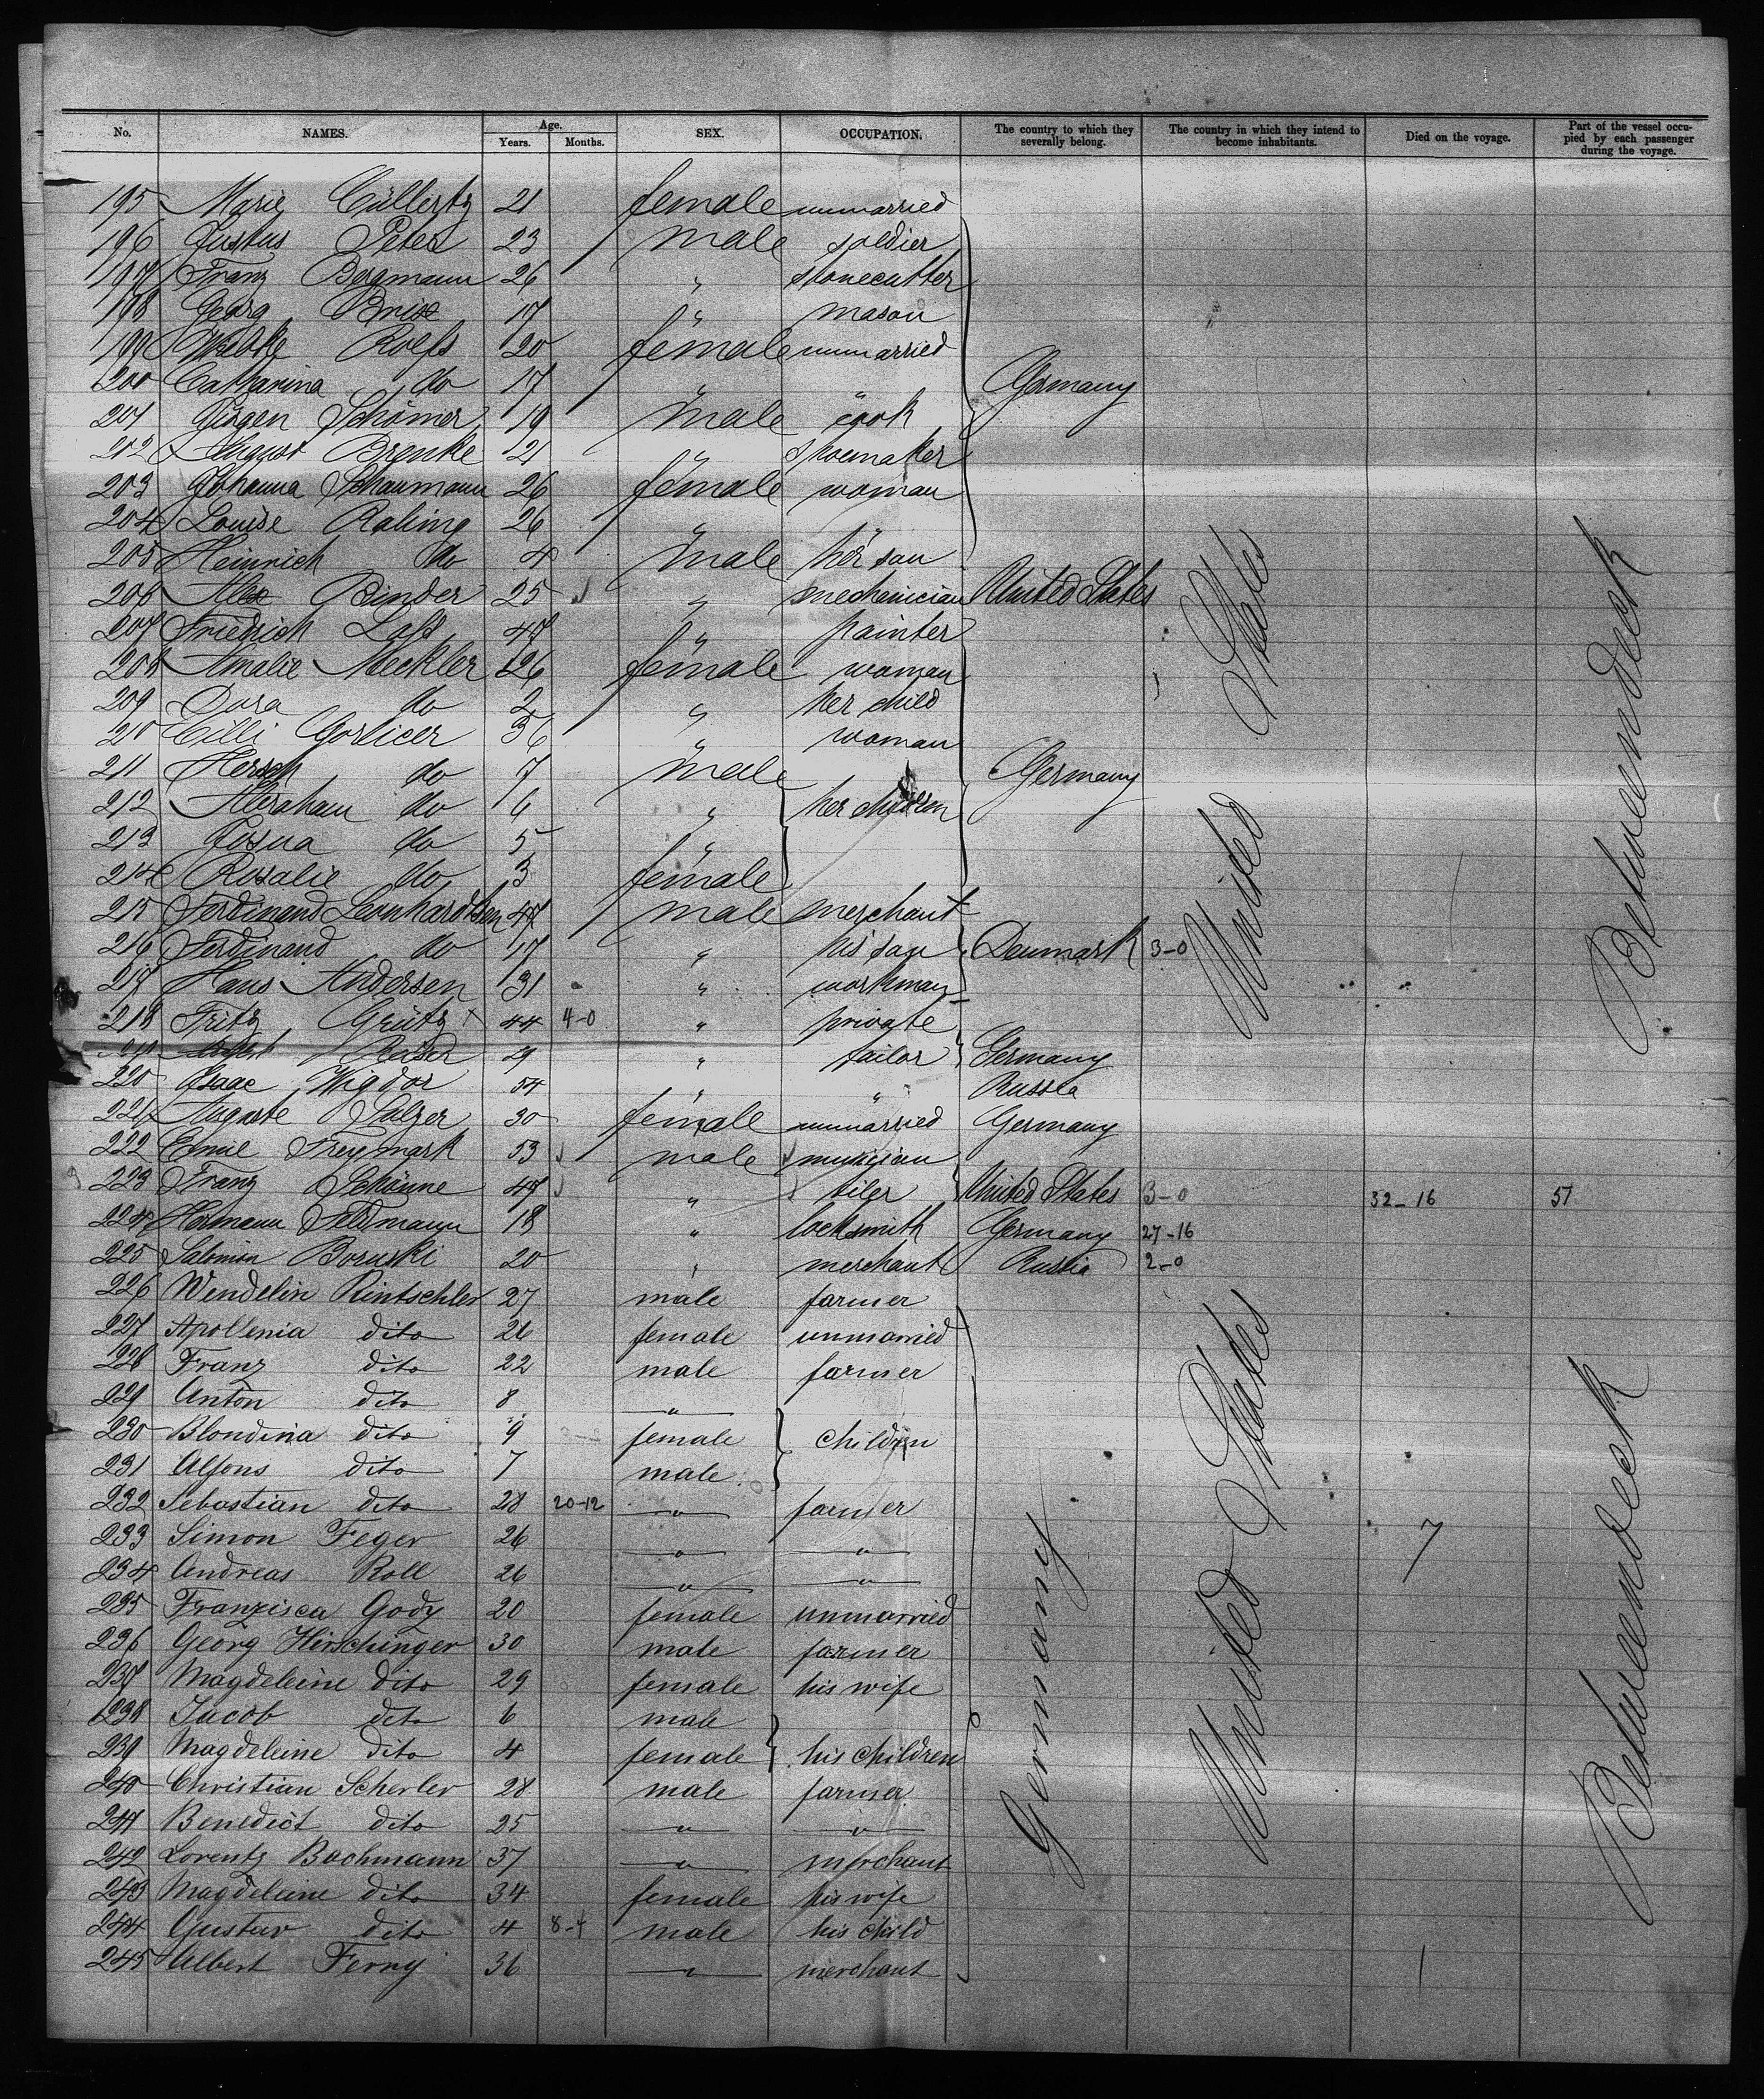 No. NAMES. Age. Years. Months. SEX. OCCUPATION. The country to which they severally belong. The country in which they intend to become inhabitants. Died on the voyage. Part of the vessel occupied by each passenger during the voyage.
195 Marie Cüllertz 21 female unmarried
196 Justus Peter 23 male soldier
197 Franz Bergmann 26 " stonecutter
198 Georg Brix 17 " mason
199 Wiebke Roefs 20 female unmarried
200 Catharina do 17 " " Germany
201 Jürgen Schömer 19 male cook
202 August Brenke 21 " shoemaker
203 Johanna Schaumann 26 female woman
204 Louise Rabing 26 " "
205 Heinrich do 4 male her son
206 Alex Binder 25 " mechenician United States
207 Friedrich Lass 47 " painter
208 Amalie Meckler 26 female woman
209 Dora do 2 " her child
210 Cilli Gorlicer 36 " woman
211 Hersch do 7 male Germany
212 Abraham do 6 " her children
213 Josua do 5 "
214 Rosalie do 3 female
215 Ferdinand Leonhardtsen 47 male merchant
216 Ferdinand do 17 " his son Denmark 3-0
217 Hans Andersen 31 " workman
218 Fritz Grütz x 44 4-0 " private
219 Reiser " tailor Germany
220 Isaac Wigdor 54 " " Russia
221 Auguste Salzer 30 female unmarried Germany
222 Emil Freymark 53 male musician
223 Franz Schönne 47 " tiler United States 3-0 32-16 57
224 Hermann Feldmann 18 " locksmith Germany 27-16
225 Salomon Boruski 20 " merchant Russia 2-0
226 Wendelin Rintschler 27 male farmer
227 Apollenia dito 26 female unmarried
228 Franz dito 22 male farmer
229 Anton dito 8 "
230 Blondina dito 9 female children
231 Alfons dito 7 male
232 Sebastian dito 28 20-12 " farmer
233 Simon Feger 26 " "
234 Andreas Roll 26 " "
235 Franzisca Gody 20 female unmarried
236 Georg Hirschinger 30 male farmer
237 Magdeleine dito 29 female his wife
238 Jacob dito 6 male
239 Magdeleine dito 4 female his children
240 Christian Scherler 28 male farmer
241 Benedict dito 25 " "
242 Lorentz Bachmann 37 " merchant
243 Magdeleine dito 34 female his wife
244 Gustav dito 4 8-4 male his child
245 Albert Ferny 36 " merchant
Germany
United States
United States
7
Betweendeck
Betweendeck